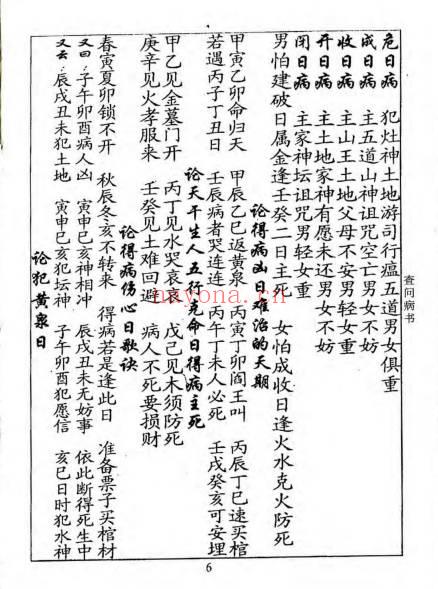 查问病书
危日病 犯灶神土地游司行瘟五道男女俱重
成日病 主五道山神诅咒空亡男女不妨
收日病 主山王土地父母不安男轻女重
开日病 主土地家神有愿未还男女不妨
闭日病 主家神坛诅咒男轻女重
男怕建破日属金逢壬癸二日主死 女怕成收日逢火水克火防死
论得病凶日难治的天期
甲寅乙卯命归天 甲辰乙巳返黄泉 丙寅丁卯阎王叫 丙辰丁巳速买棺
若遇丙子丁丑日 壬辰病者哭连连 丙午丁未人必死 壬戌癸亥可安埋
论天干生人五行克命日得病主死
甲乙见金墓门开 丙丁见水哭哀哀 戊己见木须防死
庚辛见火孝服来 壬癸见土难回避 病人不死要损财
论得病伤心日歌诀
春寅夏卯锁不开 秋辰冬亥不转来 得病若是逢此日 准备票子买棺材
又曰 子午卯酉病人凶 寅申巳亥神相冲 辰戌丑未无妨事 依此断得死生中
又云 辰戌丑未犯土地 寅申巳亥犯坛神 子午卯酉犯愿信 亥巳日时犯水神
论犯黄泉日
6
nayona.cn